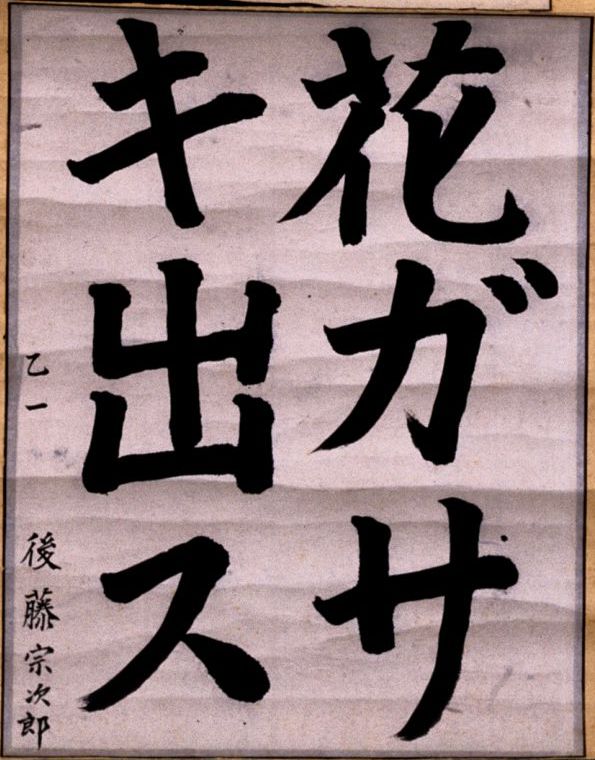 花ガサ
キ出ス
乙一
後藤宗次郎